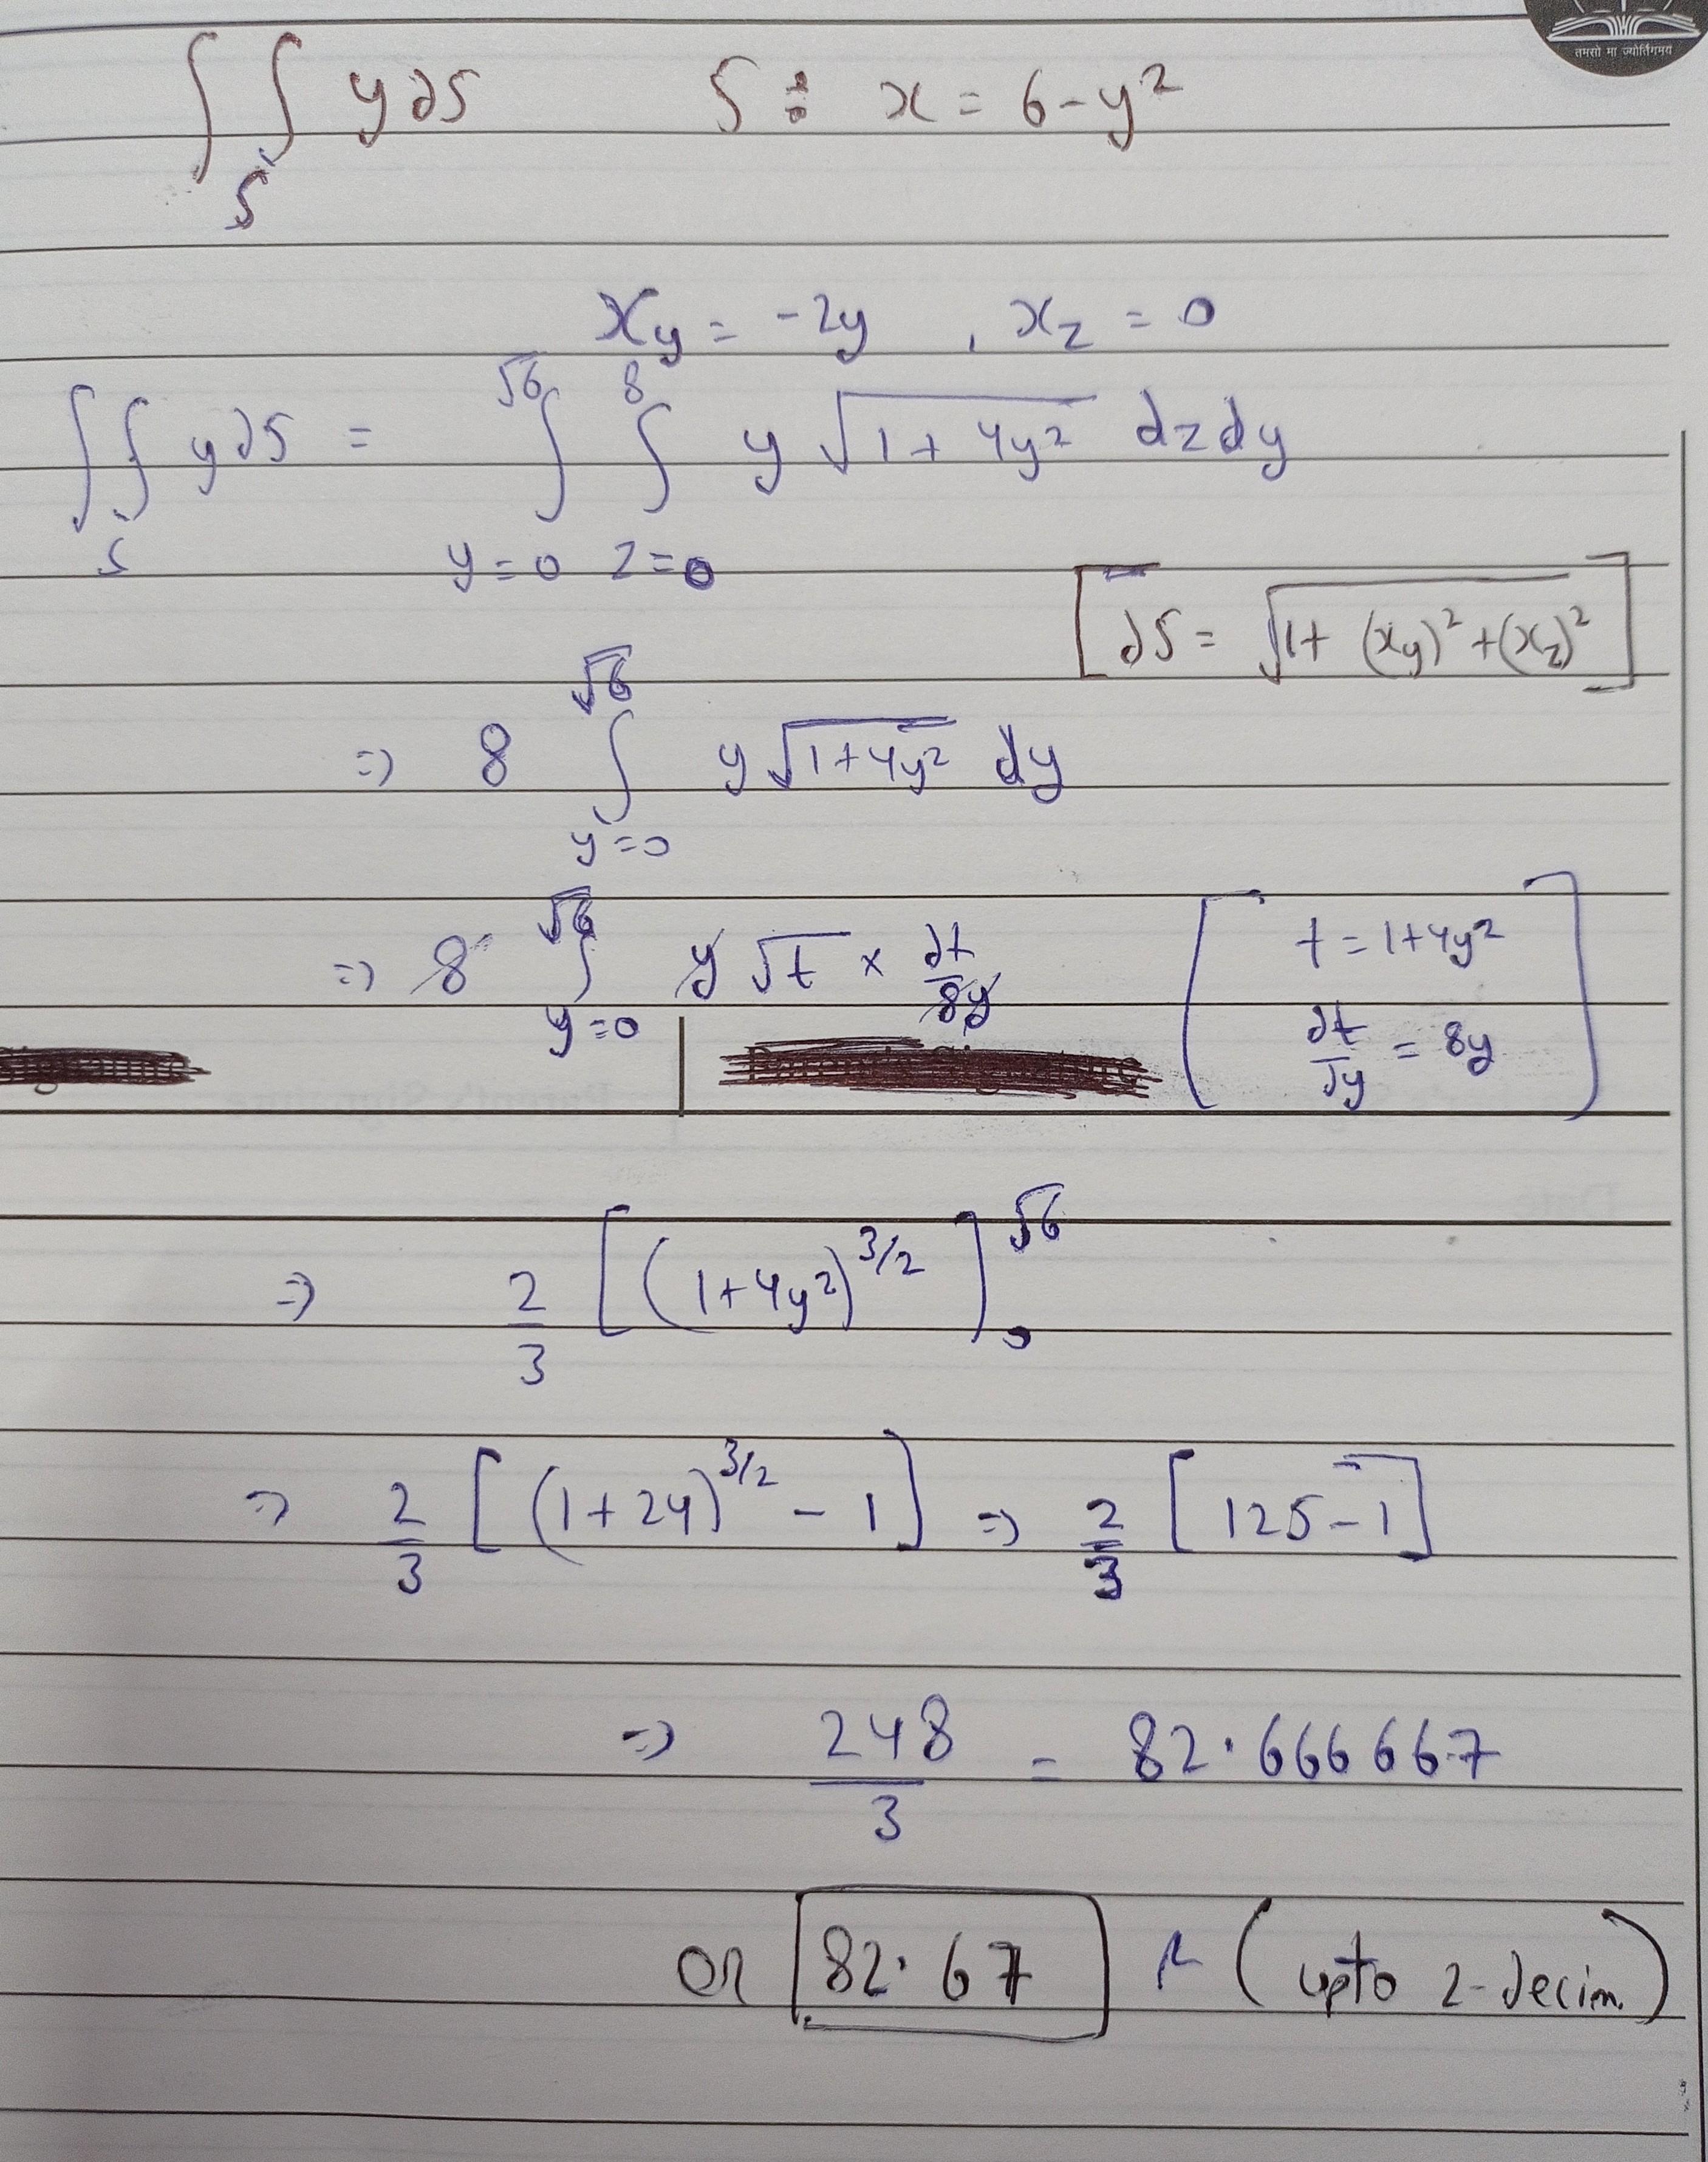 तमसो मा ज्योर्तिगमय
∫∫_S y dS S : x = 6 - y²
x_y = -2y , x_z = 0
∫∫_S y dS = ∫_{y=0}^{√6} ∫_{z=0}^{8} y √(1 + 4y²) dz dy
[dS = √(1 + (x_y)² + (x_z)²)]
=> 8 ∫_{y=0}^{√6} y √(1+4y²) dy
=> 8 ∫_{y=0}^{√6} y √t × dt/8y [t = 1+4y²
dt/dy = 8y]
=> 2/3 [(1+4y²)^{3/2}]_0^{√6}
=> 2/3 [(1+24)^{3/2} - 1] => 2/3 [125 - 1]
=> 248/3 = 82.666667
or 82.67 (upto 2-decim.)